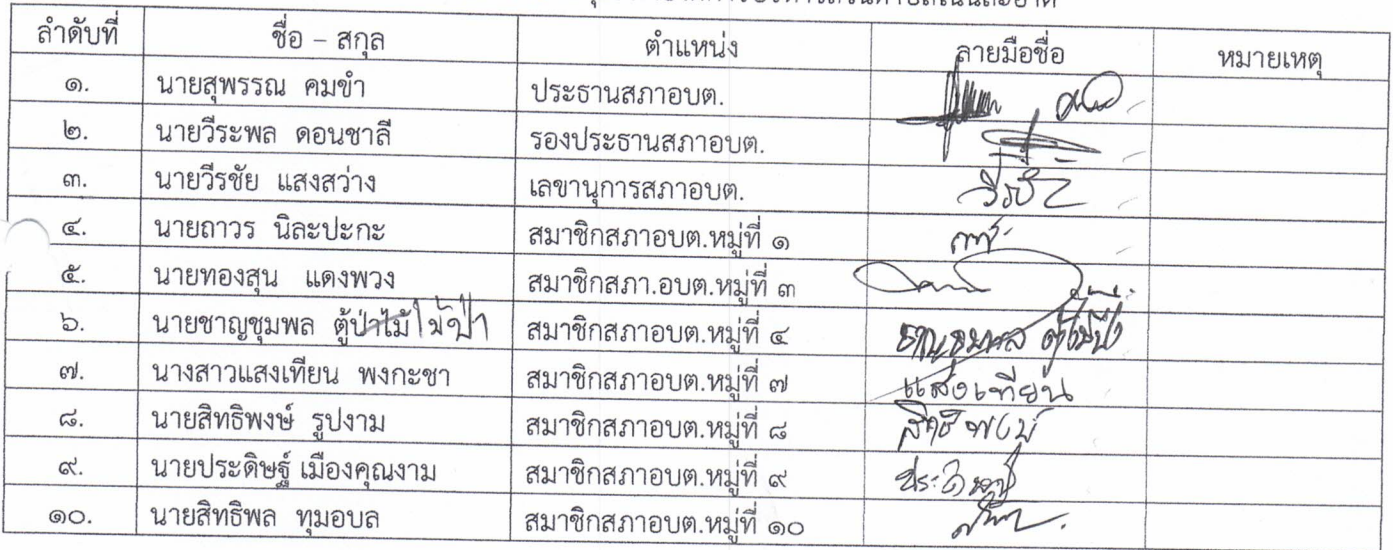 ลำดับที่ ชื่อ – สกุล ตำแหน่ง ลายมือชื่อ หมายเหตุ
๑. นายสุพรรณ คมขำ ประธานสภาอบต.
๒. นายวีระพล ดอนชาลี รองประธานสภาอบต.
๓. นายวีรชัย แสงสว่าง เลขานุการสภาอบต. วีรชัย
๔. นายถาวร นิละปะกะ สมาชิกสภาอบต.หมู่ที่ ๑
๕. นายทองสุน แดงพวง สมาชิกสภา.อบต.หมู่ที่ ๓
๖. นายชาญชุมพล ตู้ป่าไม้ ไม้ป่า สมาชิกสภาอบต.หมู่ที่ ๔ ชาญชุมพล ตู้ไม้ป่า
๗. นางสาวแสงเทียน พงกะชา สมาชิกสภาอบต.หมู่ที่ ๗ แสงเทียน
๘. นายสิทธิพงษ์ รูปงาม สมาชิกสภาอบต.หมู่ที่ ๘ สิทธิพงษ์
๙. นายประดิษฐ์ เมืองคุณงาม สมาชิกสภาอบต.หมู่ที่ ๙ ประดิษฐ์
๑๐. นายสิทธิพล ทุมอบล สมาชิกสภาอบต.หมู่ที่ ๑๐